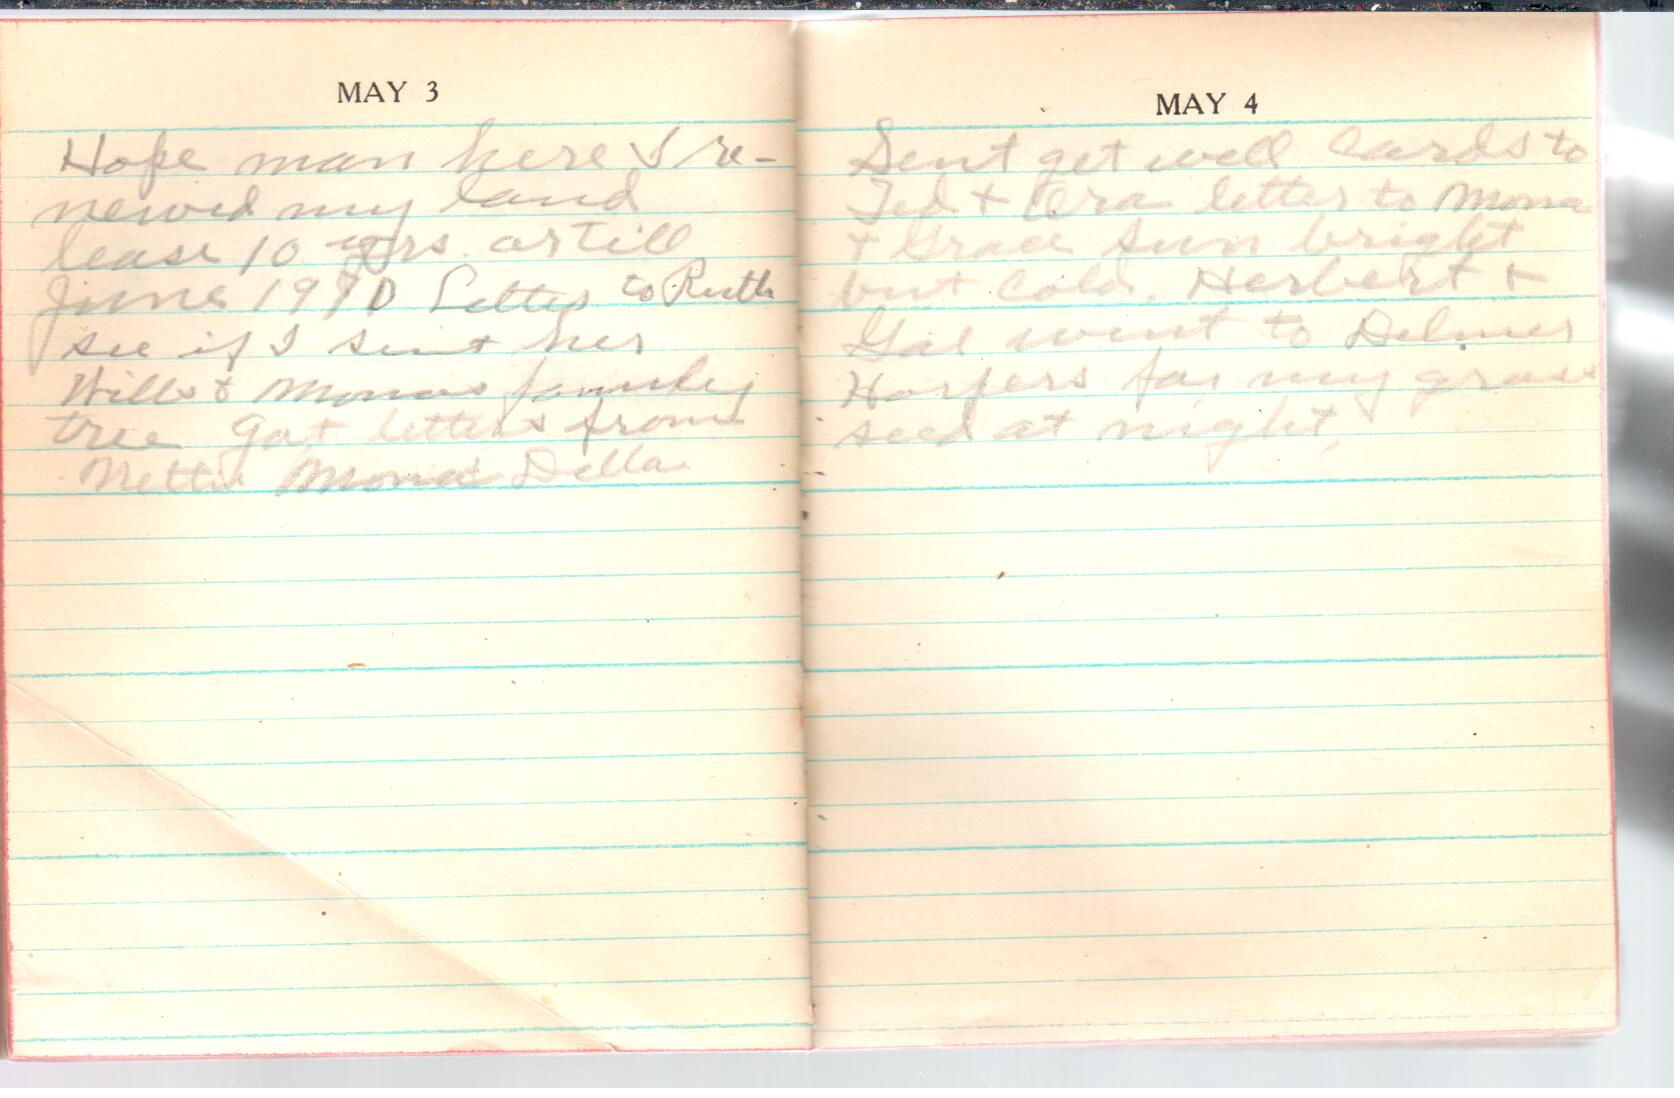 MAY 3
Hope man here & I re-
newed my land
lease 10 yrs. or till
June 1990 Letter to Ruth
see if I sent her
Wills & Monas family
tree got letters from
Nettie Mona & Della
MAY 4
Sent get well cards to
Ted + Ora letter to Mona
+ Grace Sun bright
but cold. Herbert +
Gal went to Delmer
Harpers for my grass
seed at night.